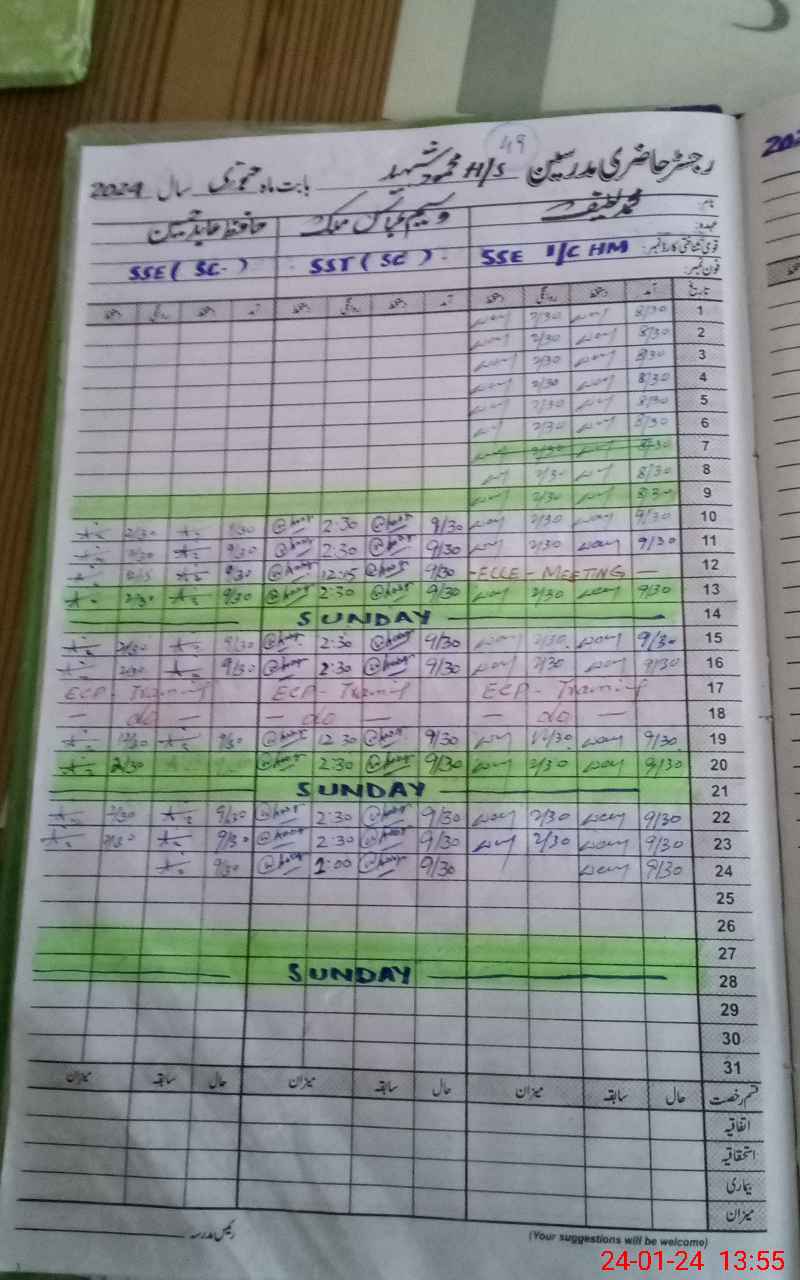 49
رجسٹر حاضری مدرسین H/S محمود شہید بابت ماہ جنوری سال 2024
نام: محمد لطیف وسیم عباس ملک حافظ عابد حسین
عہدہ:
قومی شناختی کارڈ نمبر: SSE I/C HM SST (SC) SSE (SC)
فون نمبر:
تاریخ آمد دستخط روانگی دستخط آمد دستخط روانگی دستخط آمد دستخط روانگی دستخط
1 8/30 2/30
2 8/30 2/30
3 8/30 2/30
4 8/30 2/30
5 8/30 2/30
6 8/30 2/30
7 8/30 2/30
8 8/30 2/30
9 8/30 2/30
10 9/30 2/30 9/30 2:30 9/30 2/30
11 9/30 2/30 9/30 2:30 9/30 2/30
12 - ECCE - MEETING - 9/30 12:15 9/30
13 9/30 2/30 9/30 2:30 9/30 2/30
14 SUNDAY
15 9/30 2/30 9/30 2:30 9/30 2/30
16 9/30 2/30 9/30 2:30 9/30 2/30
17 ECP - Training ECP - Training ECP - Training
18 — do — — do — — do —
19 9/30 12/30 9/30 12 30 9/30 12/30
20 9/30 2/30 9/30 2:30 2/30
21 SUNDAY
22 9/30 2/30 9/30 2:30 9/30 2/30
23 9/30 2/30 9/30 2:30 9/30 2/30
24 9/30 9/30 1:00 9/30
25
26
27
28 SUNDAY
29
30
31
قسم رخصت حال سابقہ میزان حال سابقہ میزان حال سابقہ میزان
اتفاقیہ
استحقاقیہ
بیماری
میزان
رئیس مدرسہ
(Your suggestions will be welcome)
24-01-24 13:55